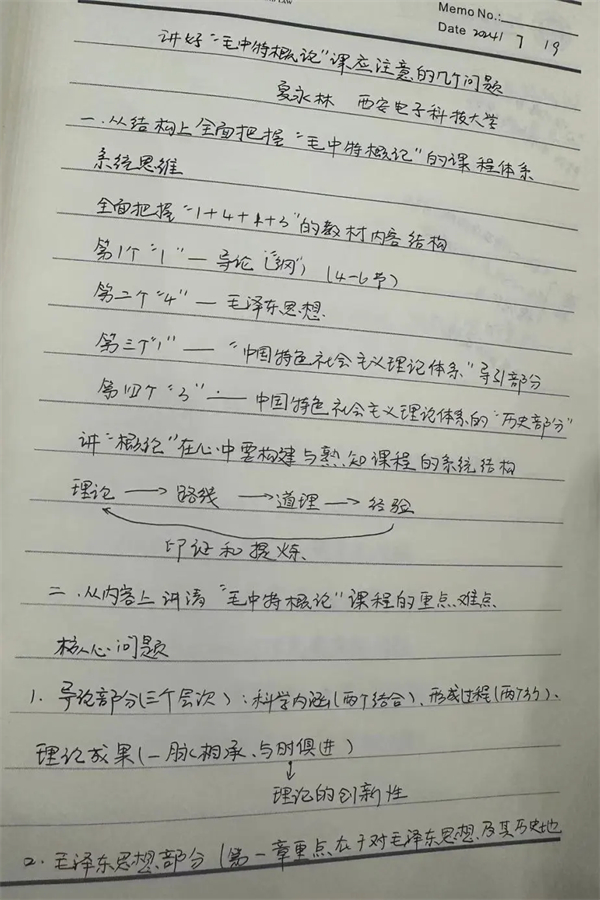 LAW
Memo No.:
Date 2024 / 7 19
讲好“毛中特概论”课应注意的几个问题
夏永林 西安电子科技大学
一.从结构上全面把握“毛中特概论”的课程体系
系统思维
全面把握“1+4+1+3”的教材内容结构
第1个“1”—导论(“纲”)(4-6节)
第二个“4”—毛泽东思想.
第三个“1”——“中国特色社会主义理论体系”导引部分
第四个“3”——中国特色社会主义理论体系的“历史部分”
讲“概论”在心中要构建与熟知课程的系统结构
理论→路线→道理→经验
印证和提炼.
二.从内容上讲清“毛中特概论”课程的重点.难点
核心问题
1.导论部分(三个层次):科学内涵(两个结合)、形成过程(两个部分)、
理论成果(一脉相承、与时俱进)
理论的创新性
2.毛泽东思想部分(第一章重点在于对毛泽东思想及其历史地